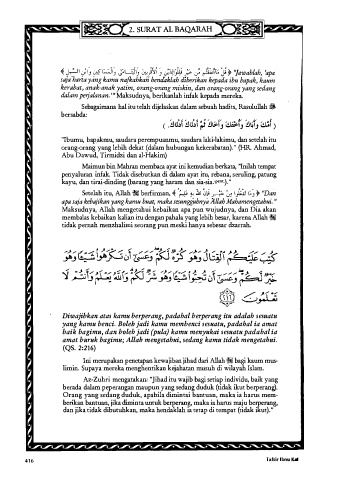 2. SURAT AL BAQARAH
﴿ قُلْ مَا أَنفَقْتُم مِّنْ خَيْرٍ فَلِلْوَالِدَيْنِ وَالْأَقْرَبِينَ وَالْيَتَامَىٰ وَالْمَسَاكِينِ وَابْنِ السَّبِيلِ ﴾ "Jawablah, 'apa
saja harta yang kamu nafkahkan hendaklah diberikan kepada ibu bapak, kaum
kerabat, anak-anak yatim, orang-orang miskin, dan orang-orang yang sedang
dalam perjalanan.'" Maksudnya, berikanlah infak kepada mereka.
Sebagaimana hal itu telah dijelaskan dalam sebuah hadits, Rasulullah ﷺ
bersabda:
( أُمَّكَ وَأَبَاكَ وَأُخْتَكَ وَأَخَاكَ ثُمَّ أَدْنَاكَ أَدْنَاكَ )
"Ibumu, bapakmu, saudara perempuanmu, saudara laki-lakimu, dan setelah itu
orang-orang yang lebih dekat (dalam hubungan kekerabatan)." (HR. Ahmad,
Abu Dawud, Tirmidzi dan al-Hakim)
Maimun bin Mahran membaca ayat ini kemudian berkata, "Inilah tempat
penyaluran infak. Tidak disebutkan di dalam ayat itu, rebana, seruling, patung
kayu, dan tirai-dinding (barang yang haram dan sia-sia.)."
Setelah itu, Allah ﷻ berfirman, ﴿ وَمَا تَفْعَلُوا مِنْ خَيْرٍ فَإِنَّ اللَّهَ بِهِ عَلِيمٌ ﴾ "Dan
apa saja kebajikan yang kamu buat, maka sesungguhnya Allah Mahamengetahui."
Maksudnya, Allah mengetahui kebaikan apa pun wujudnya, dan Dia akan
membalas kebaikan kalian itu dengan pahala yang lebih besar, karena Allah ﷻ
tidak pernah menzhalimi seorang pun meski hanya sebesar dzarrah.
كُتِبَ عَلَيْكُمُ الْقِتَالُ وَهُوَ كُرْهٌ لَّكُمْ وَعَسَىٰ أَن تَكْرَهُوا شَيْئًا وَهُوَ
خَيْرٌ لَّكُمْ وَعَسَىٰ أَن تُحِبُّوا شَيْئًا وَهُوَ شَرٌّ لَّكُمْ وَاللَّهُ يَعْلَمُ وَأَنتُمْ لَا
تَعْلَمُونَ ﴿٢١٦﴾
Diwajibkan atas kamu berperang, padahal berperang itu adalah sesuatu
yang kamu benci. Boleh jadi kamu membenci sesuatu, padahal ia amat
baik bagimu, dan boleh jadi (pula) kamu menyukai sesuatu padahal ia
amat buruk bagimu; Allah mengetahui, sedang kamu tidak mengetahui.
(QS. 2:216)
Ini merupakan penetapan kewajiban jihad dari Allah ﷻ bagi kaum mus-
limin. Supaya mereka menghentikan kejahatan musuh di wilayah Islam.
Az-Zuhri mengatakan: "Jihad itu wajib bagi setiap individu, baik yang
berada dalam peperangan maupun yang sedang duduk (tidak ikut berperang).
Orang yang sedang duduk, apabila dimintai bantuan, maka ia harus mem-
berikan bantuan, jika diminta untuk berperang, maka ia harus maju berperang,
dan jika tidak dibutuhkan, maka hendaklah ia tetap di tempat (tidak ikut)."
416
Tafsir Ibnu Katsir